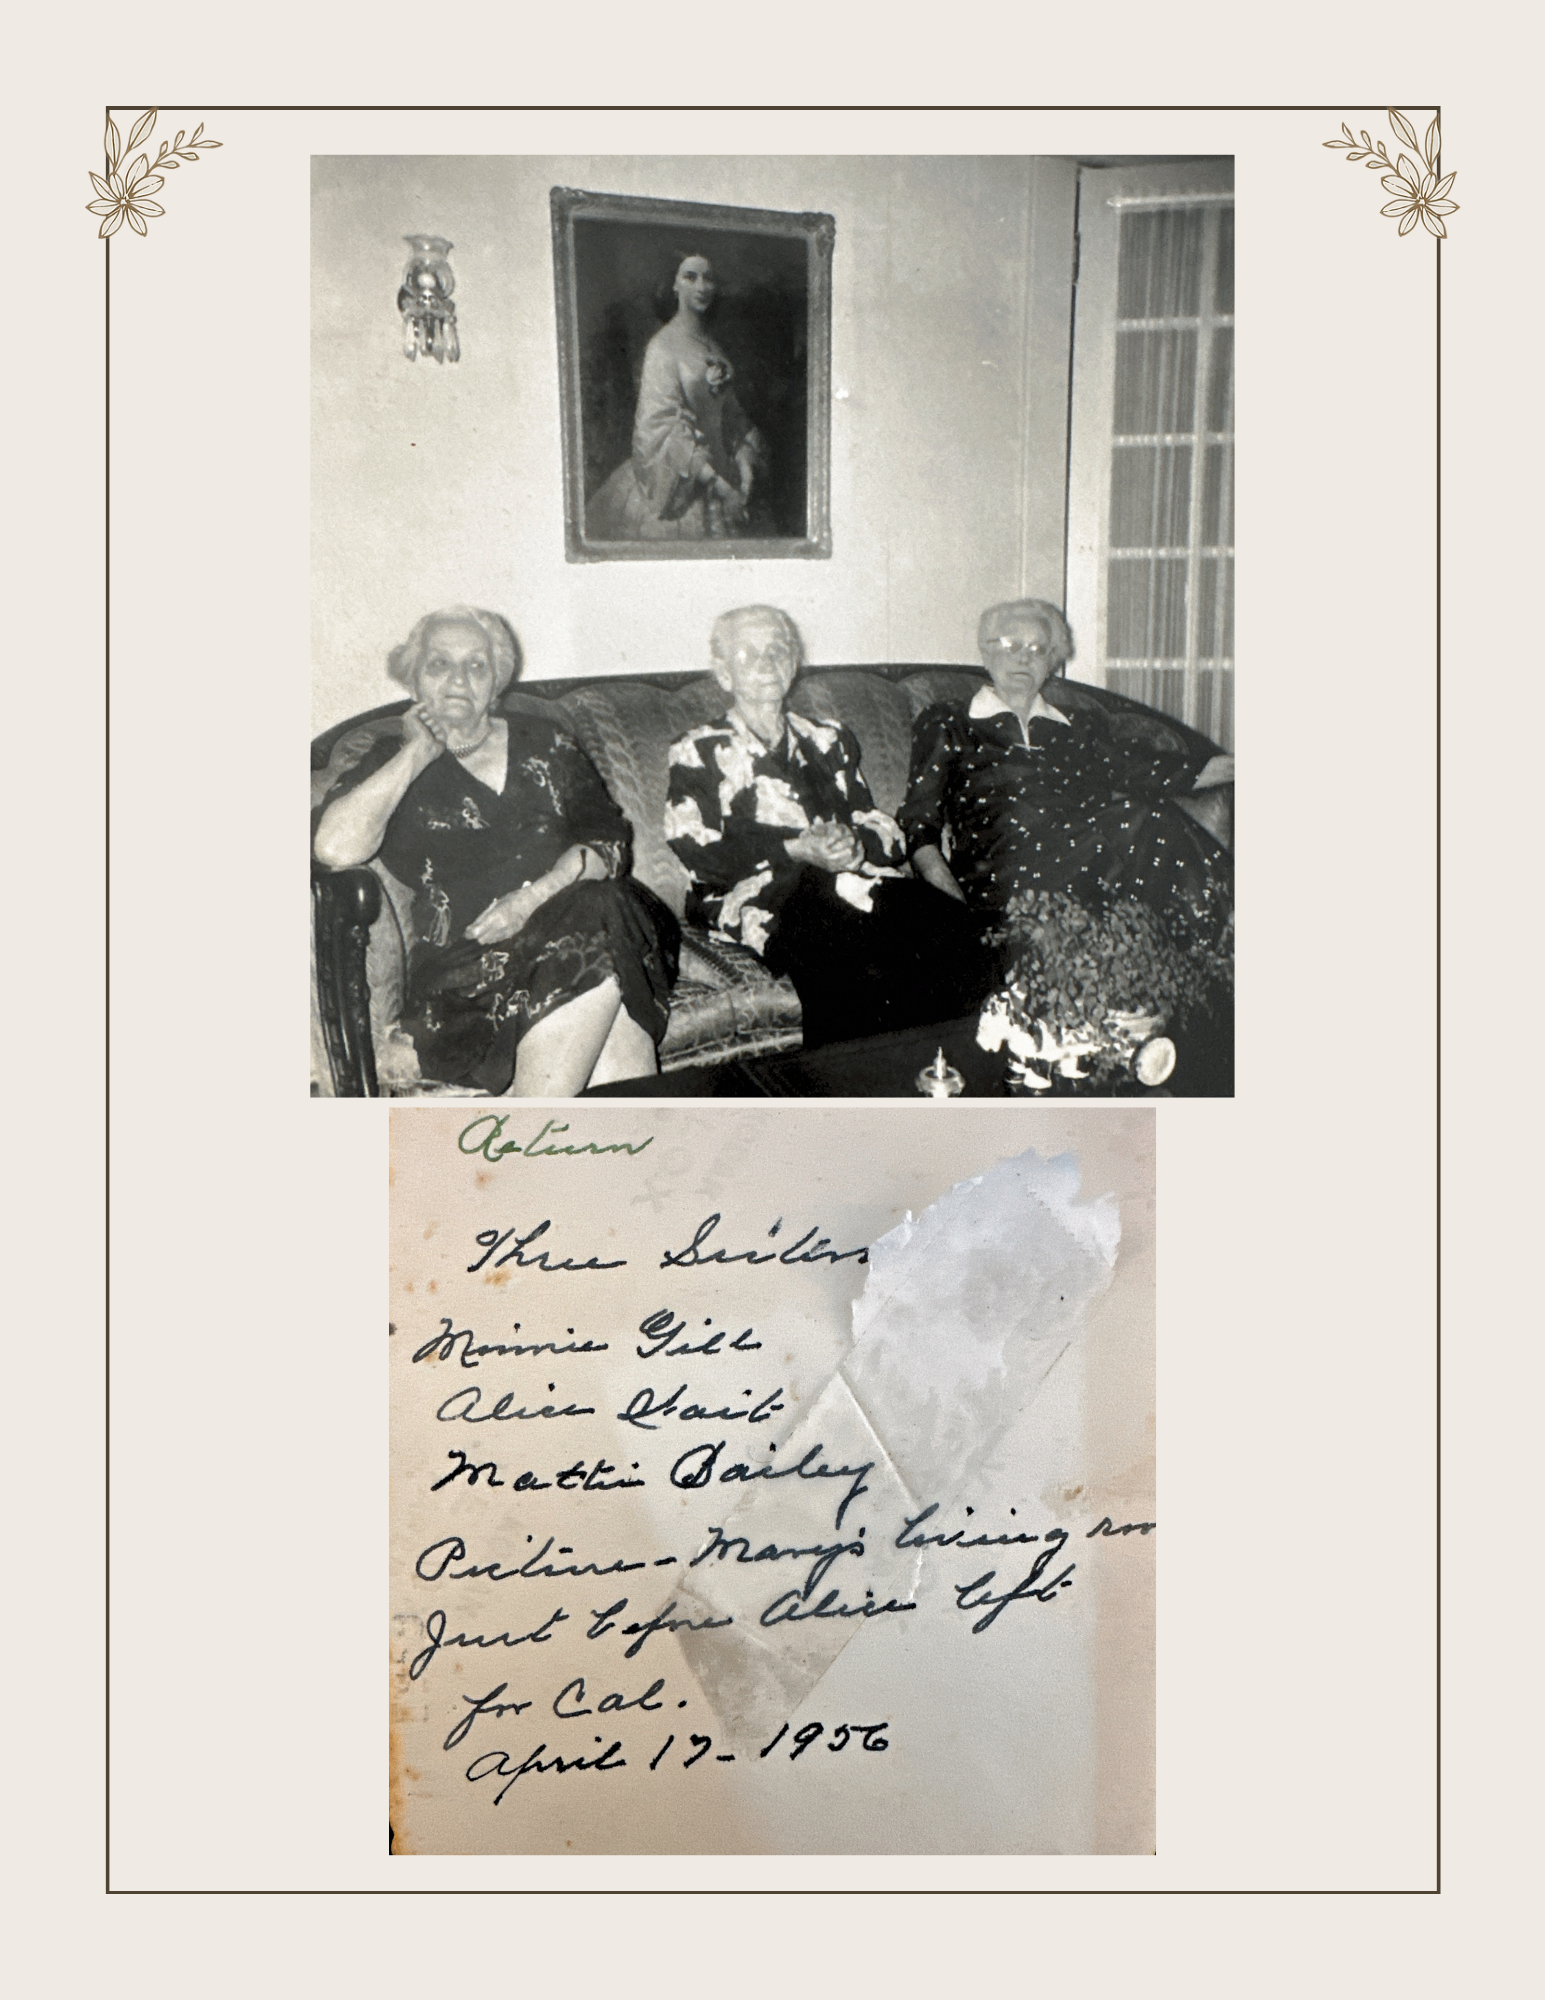 Return
Three Sisters
Minnie Gill
Alice
Mattie Bailey
Picture - Mary's living
Just before Alice left
for Cal.
April 17 - 1956